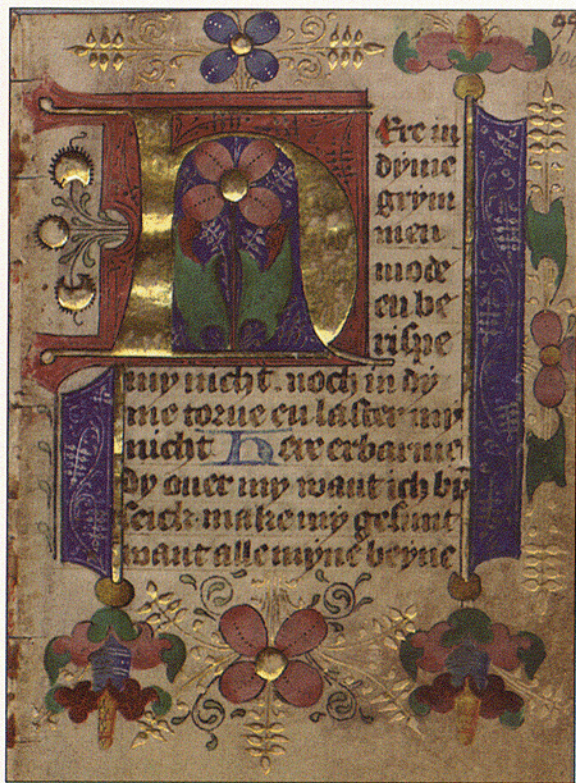 HEre in
dyme
grym
men
mode
en be
rispe
my nicht. noch in dy
me torne en laster my
nicht Here erbarme
dy ouer my want ich byn
seick. make my gesunt
want alle myne beyne
99